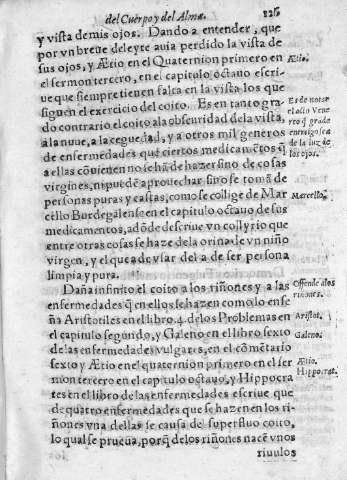 del Cuerpo y del Alma. 226
y vista demis ojos. Dando a entender, que
por vn breue deleyte auia perdido la vista de
sus ojos, y Ætio en el Quaternion primero en
el sermon tercero, en el capitulo octauo escri-
ue que siempre tienen falta en la vista los que
siguen el exercicio del coito. Es en tanto gra-
do contrario el coito a la obscuridad de la vista,
a la nuue, a la ceguedad, y a otros mil generos
de enfermedades que ciertos medicamẽtos q̃
a ellas cõuienen no se hã de hazer sino de cosas
virgines, ni puedẽ aprouechar sino se tomã de
personas puras y castas, como se collige de Mar
cello Burdegalense en el capitulo octauo de sus
medicamentos, adõde descriue vn collyrio que
entre otras cosas se haze de la orina de vn niño
virgen, y el que a de vsar del a de ser persona
limpia y pura.
Daña infinito el coito a los riñones y a las
enfermedades q̃ en ellos se hazen como lo ense
ña Aristotiles en el libro. 4. de los Problemas en
el capitulo segundo, y Galeno en el libro sexto
de las enfermedades vulgares, en el comẽtario
sexto y Ætio en el quaternion primero en el ser
mon tercero en el capitulo octauo, y Hippocra
tes en el libro de las enfermedades escriue que
de quatro enfermedades que se hazen en los ri-
ñones vna dellas se causa de superfluo coito,
lo qual se prueua, porq̃ de los riñones nacẽ vnos
riuulos
Ætio.
Es de notar
el acto Vene
reo q̃ grãde
enemigo sea
de la luz de
los ojos.
Marcello.
Offende a los
riñones.
Aristot.
Galeno.
Ætio.
Hippocrat.